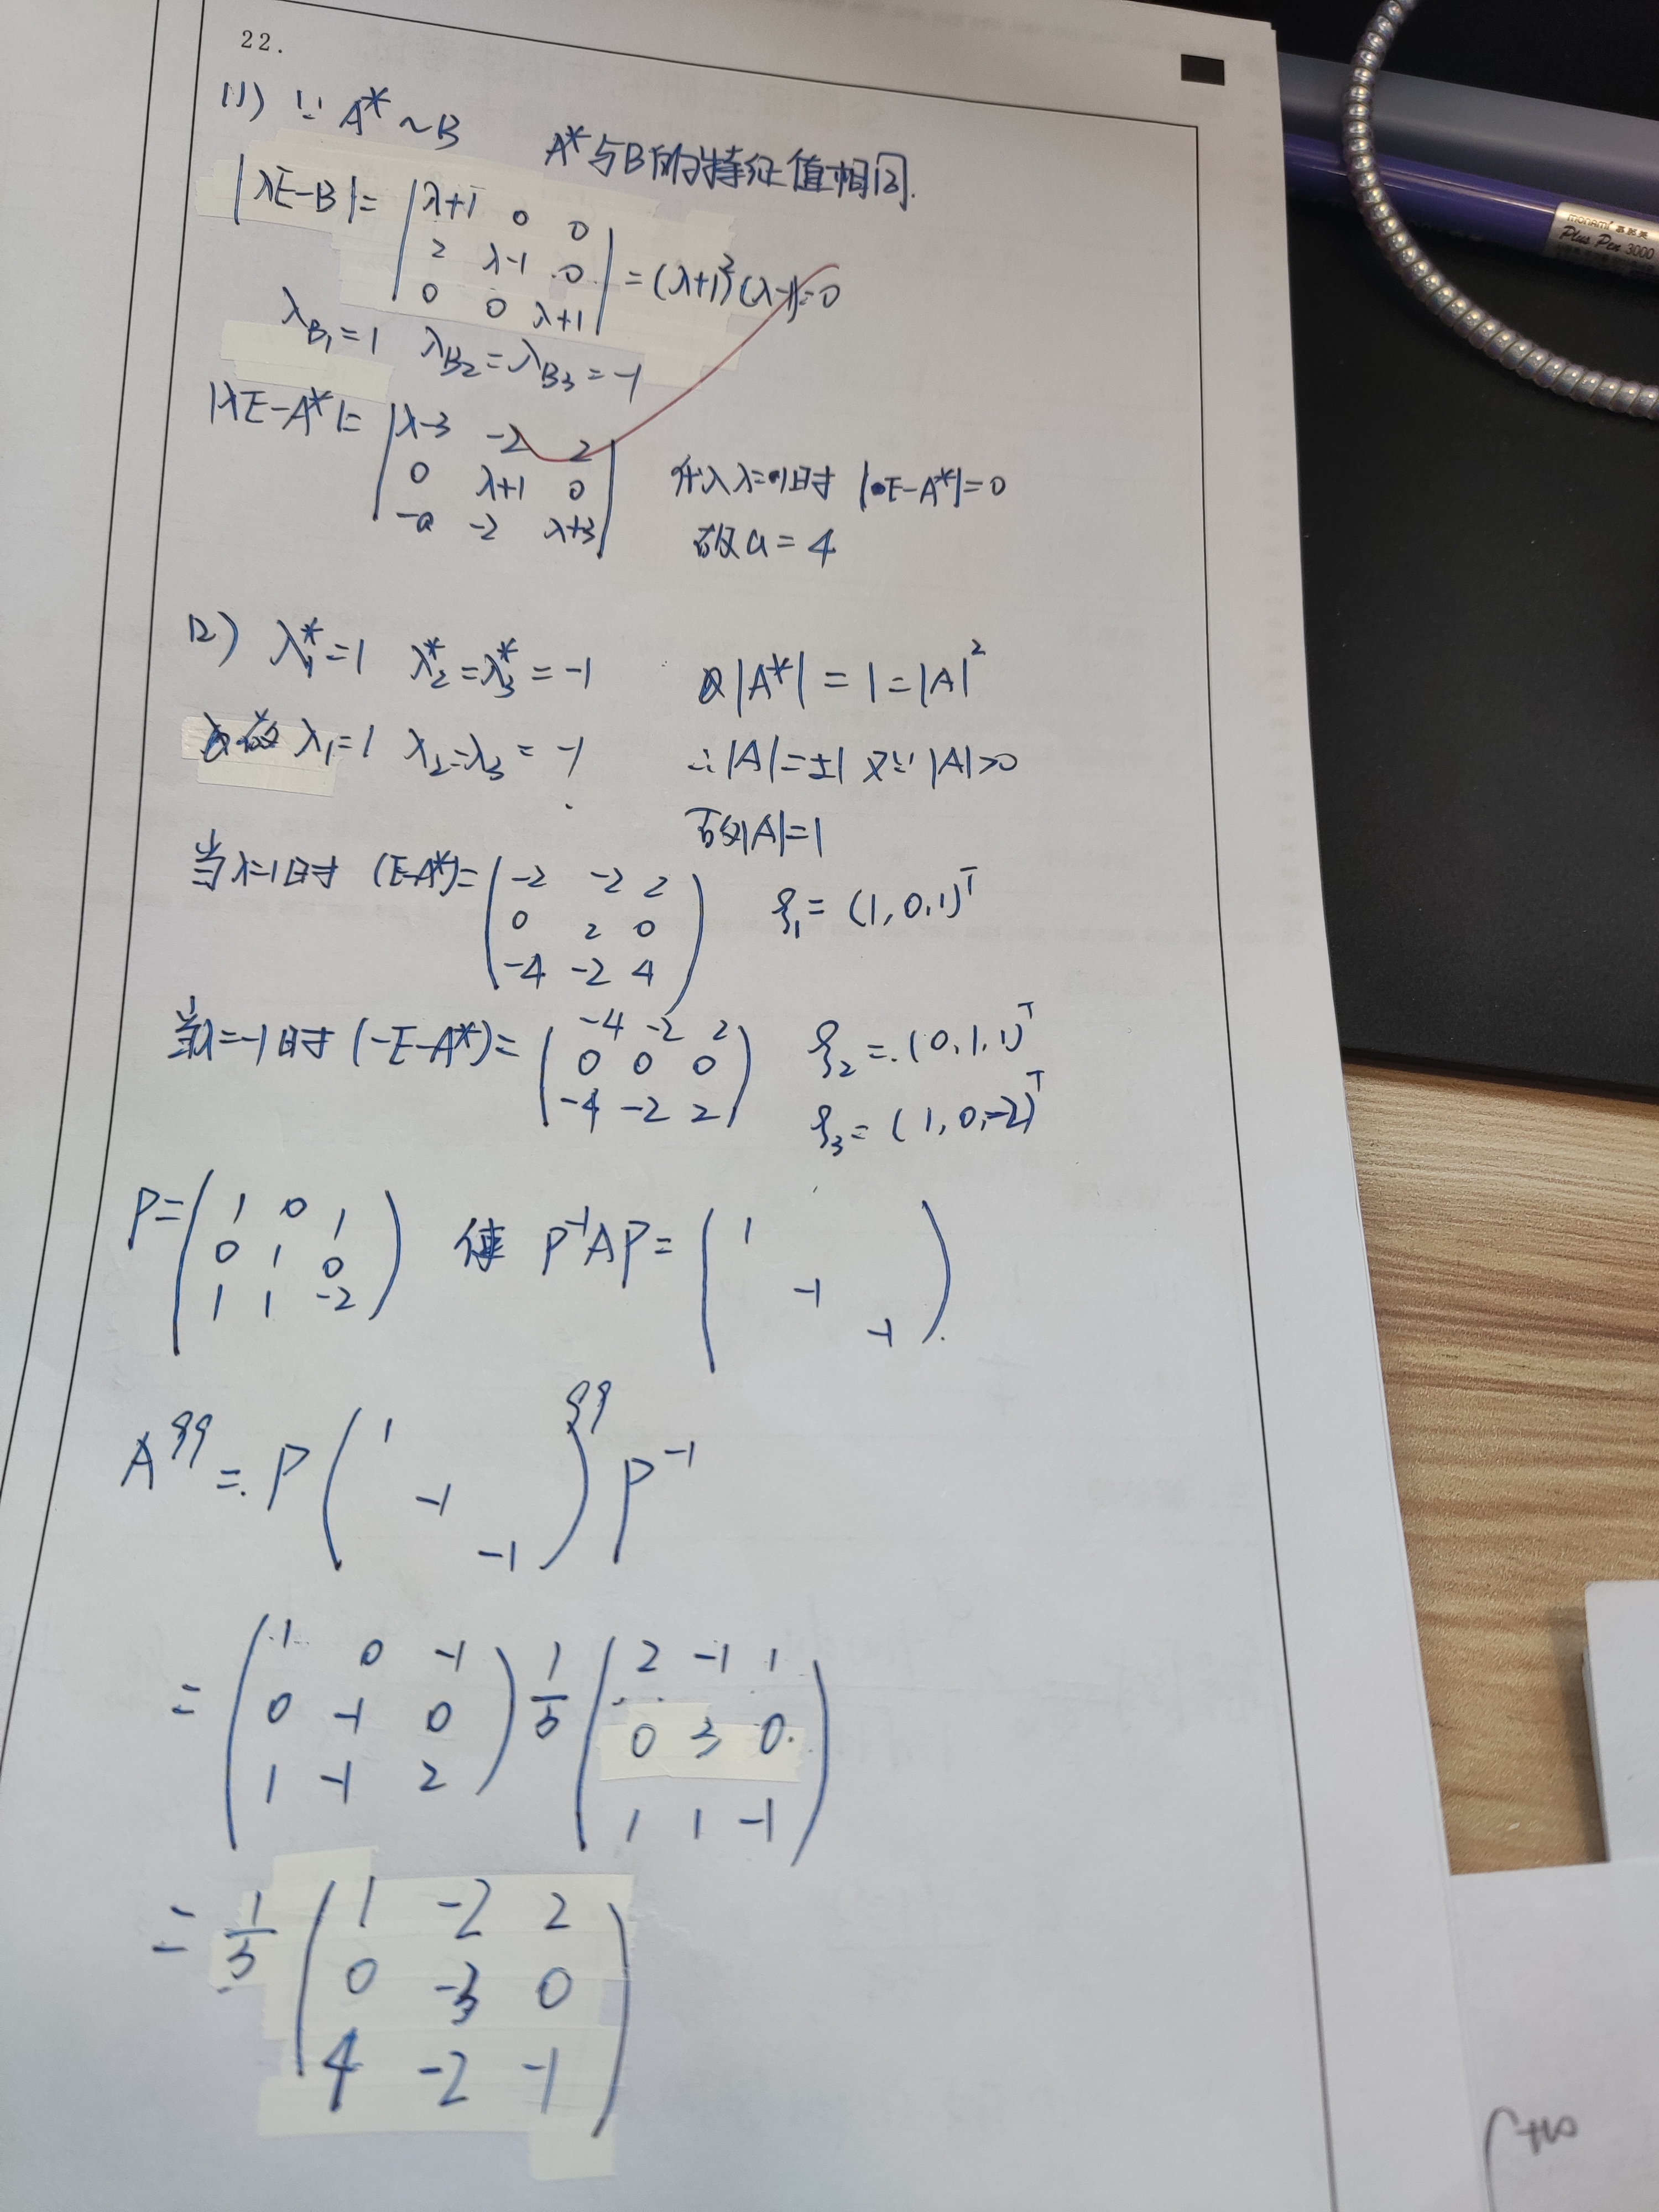 22.
(1) ∵ A* ~ B A*与B的特征值相同.
|λE-B| = | λ+1 0 0
2 λ-1 0
0 0 λ+1 | = (λ+1)²(λ-1)=0
λB₁=1 λB₂=λB₃=-1
|λE-A*|= | λ-3 -2 2
0 λ+1 0
-a -2 λ+3 |
λ=1时 |E-A*|=0
故a=4
(2) λ₁*=1 λ₂*=λ₃*=-1 |A*|=1=|A|²
故 λ₁=1 λ₂=λ₃=-1 ∴|A|=±1 又∵|A|>0
故|A|=1
当λ=1时 (E-A*)= ( -2 -2 2
0 2 0
-4 -2 4 ) ξ₁=(1,0,1)ᵀ
当λ=-1时 (-E-A*)= ( -4 -2 2
0 0 0
-4 -2 2 ) ξ₂=(0,1,1)ᵀ
ξ₃=(1,0,-2)ᵀ
P= ( 1 0 1
0 1 0
1 1 -2 ) 使 P⁻¹AP= ( 1
-1
-1 )
A⁹⁹=P ( 1
-1
-1 )⁹⁹ P⁻¹
= ( 1 0 -1
0 -1 0
1 -1 2 ) 1/3 ( 2 -1 1
0 3 0
1 1 -1 )
= 1/3 ( 1 -2 2
0 -3 0
4 -2 -1 )
monami
Plus Pen 3000